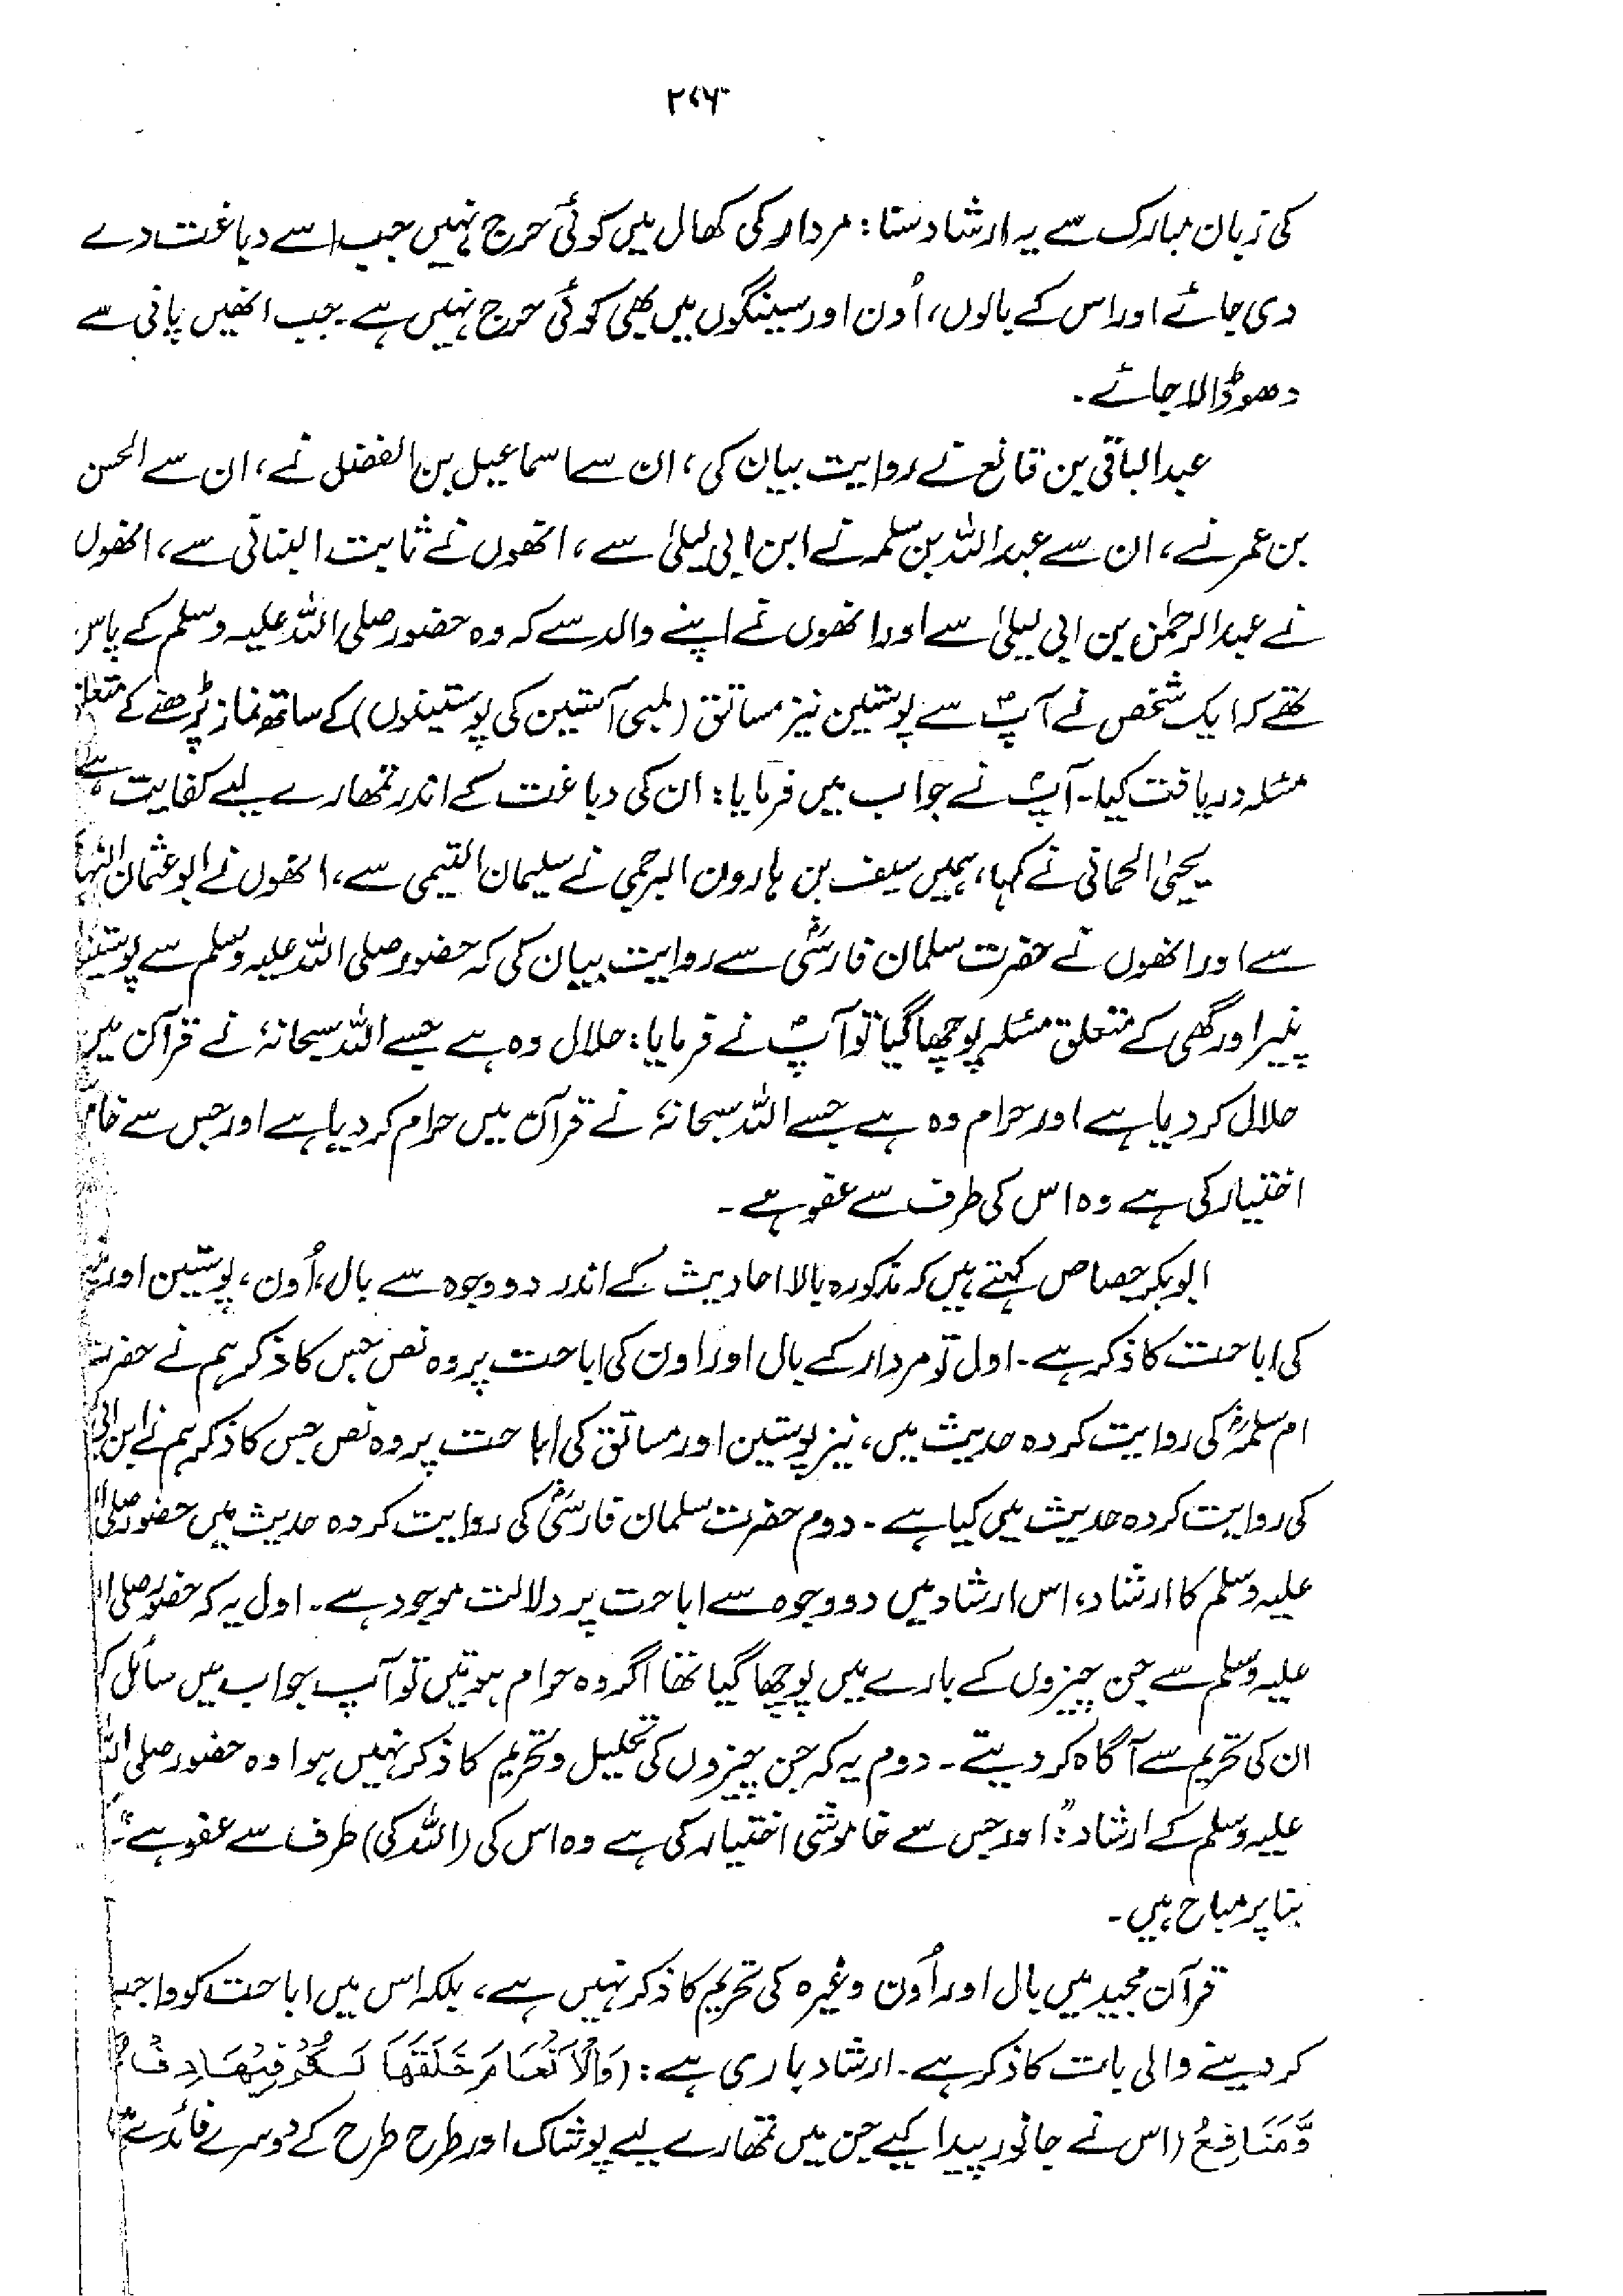 ۲۷۶
کی زبان مبارک سے یہ ارشاد سنا: مردار کی کھال میں کوئی حرج نہیں جب اسے دباغت دے
دی جائے اور اس کے بالوں، اُون اور سینگوں میں بھی کوئی حرج نہیں ہے۔ جب انھیں پانی سے
دھو ڈالا جائے۔
عبدالباقی بن قانع نے روایت بیان کی، ان سے اسماعیل بن الفضل نے، ان سے الحسن
بن عمر نے، ان سے عبداللہ بن سلمہ نے ابن ابی لیلیٰ سے، انھوں نے ثابت البنانی سے، انھوں
نے عبدالرحمٰن بن ابی لیلیٰ سے اور انھوں نے اپنے والد سے کہ وہ حضور صلی اللہ علیہ وسلم کے پاس
تھے کہ ایک شخص نے آپؐ سے پوستین نیز مساتق (لمبی آستین کی پوستینوں) کے ساتھ نماز پڑھنے کے متعلق
مسئلہ دریافت کیا۔ آپؐ نے جواب میں فرمایا: ان کی دباغت کے اندر تمھارے لیے کفایت ہے
یحییٰ الحمانی نے کہا، ہمیں سیف بن ہارون البرجمی نے سلیمان التیمی سے، انھوں نے ابوعثمان
سے اور انھوں نے حضرت سلمان فارسیؓ سے روایت بیان کی کہ حضور صلی اللہ علیہ وسلم سے
پنیر اور گھی کے متعلق مسئلہ پوچھا گیا تو آپؐ نے فرمایا: حلال وہ ہے جسے اللہ سبحانہٗ نے قرآن میں
حلال کر دیا ہے اور حرام وہ ہے جسے اللہ سبحانہٗ نے قرآن میں حرام کر دیا ہے اور جس سے
اختیار کی ہے وہ اس کی طرف سے عفو ہے۔
ابوبکر جصاص کہتے ہیں کہ مذکورہ بالا احادیث کے اندر دو وجوہ سے بال، اُون، پوستین اور
کی اباحت کا ذکر ہے۔ اول تو مردار کے بال اور اون کی اباحت پر وہ نص جس کا ذکر ہم نے حضرت
ام سلمہؓ کی روایت کردہ حدیث میں، نیز پوستین اور مساتق کی اباحت پر وہ نص جس کا ذکر ہم نے ابن ابی
کی روایت کردہ حدیث میں کیا ہے۔ دوم حضرت سلمان فارسیؓ کی روایت کردہ حدیث میں حضور صلی
علیہ وسلم کا ارشاد، اس ارشاد میں دو وجوہ سے اباحت پر دلالت موجود ہے۔ اول یہ کہ حضور صلی
علیہ وسلم سے جن چیزوں کے بارے میں پوچھا گیا تھا اگر وہ حرام ہوتیں تو آپ جواب میں سائل
ان کی تحریم سے آگاہ کر دیتے۔ دوم یہ کہ جن چیزوں کی تحلیل و تحریم کا ذکر نہیں ہوا وہ حضور صلی اللہ
علیہ وسلم کے ارشاد: "اور جس سے خاموشی اختیار کی ہے وہ اس کی (اللہ کی) طرف سے عفو ہے"۔
بنا پر مباح ہیں۔
قرآن مجید میں بال اور اُون وغیرہ کی تحریم کا ذکر نہیں ہے، بلکہ اس میں اباحت کو واجب
کر دینے والی بات کا ذکر ہے۔ ارشاد باری ہے: (وَالْاَنْعَامَ خَلَقَهَا لَكُمْ فِيْهَا دِفْءٌ
وَّمَنَافِعُ (اس نے جانور پیدا کیے جن میں تمھارے لیے پوشاک اور طرح طرح کے دوسرے فائدے